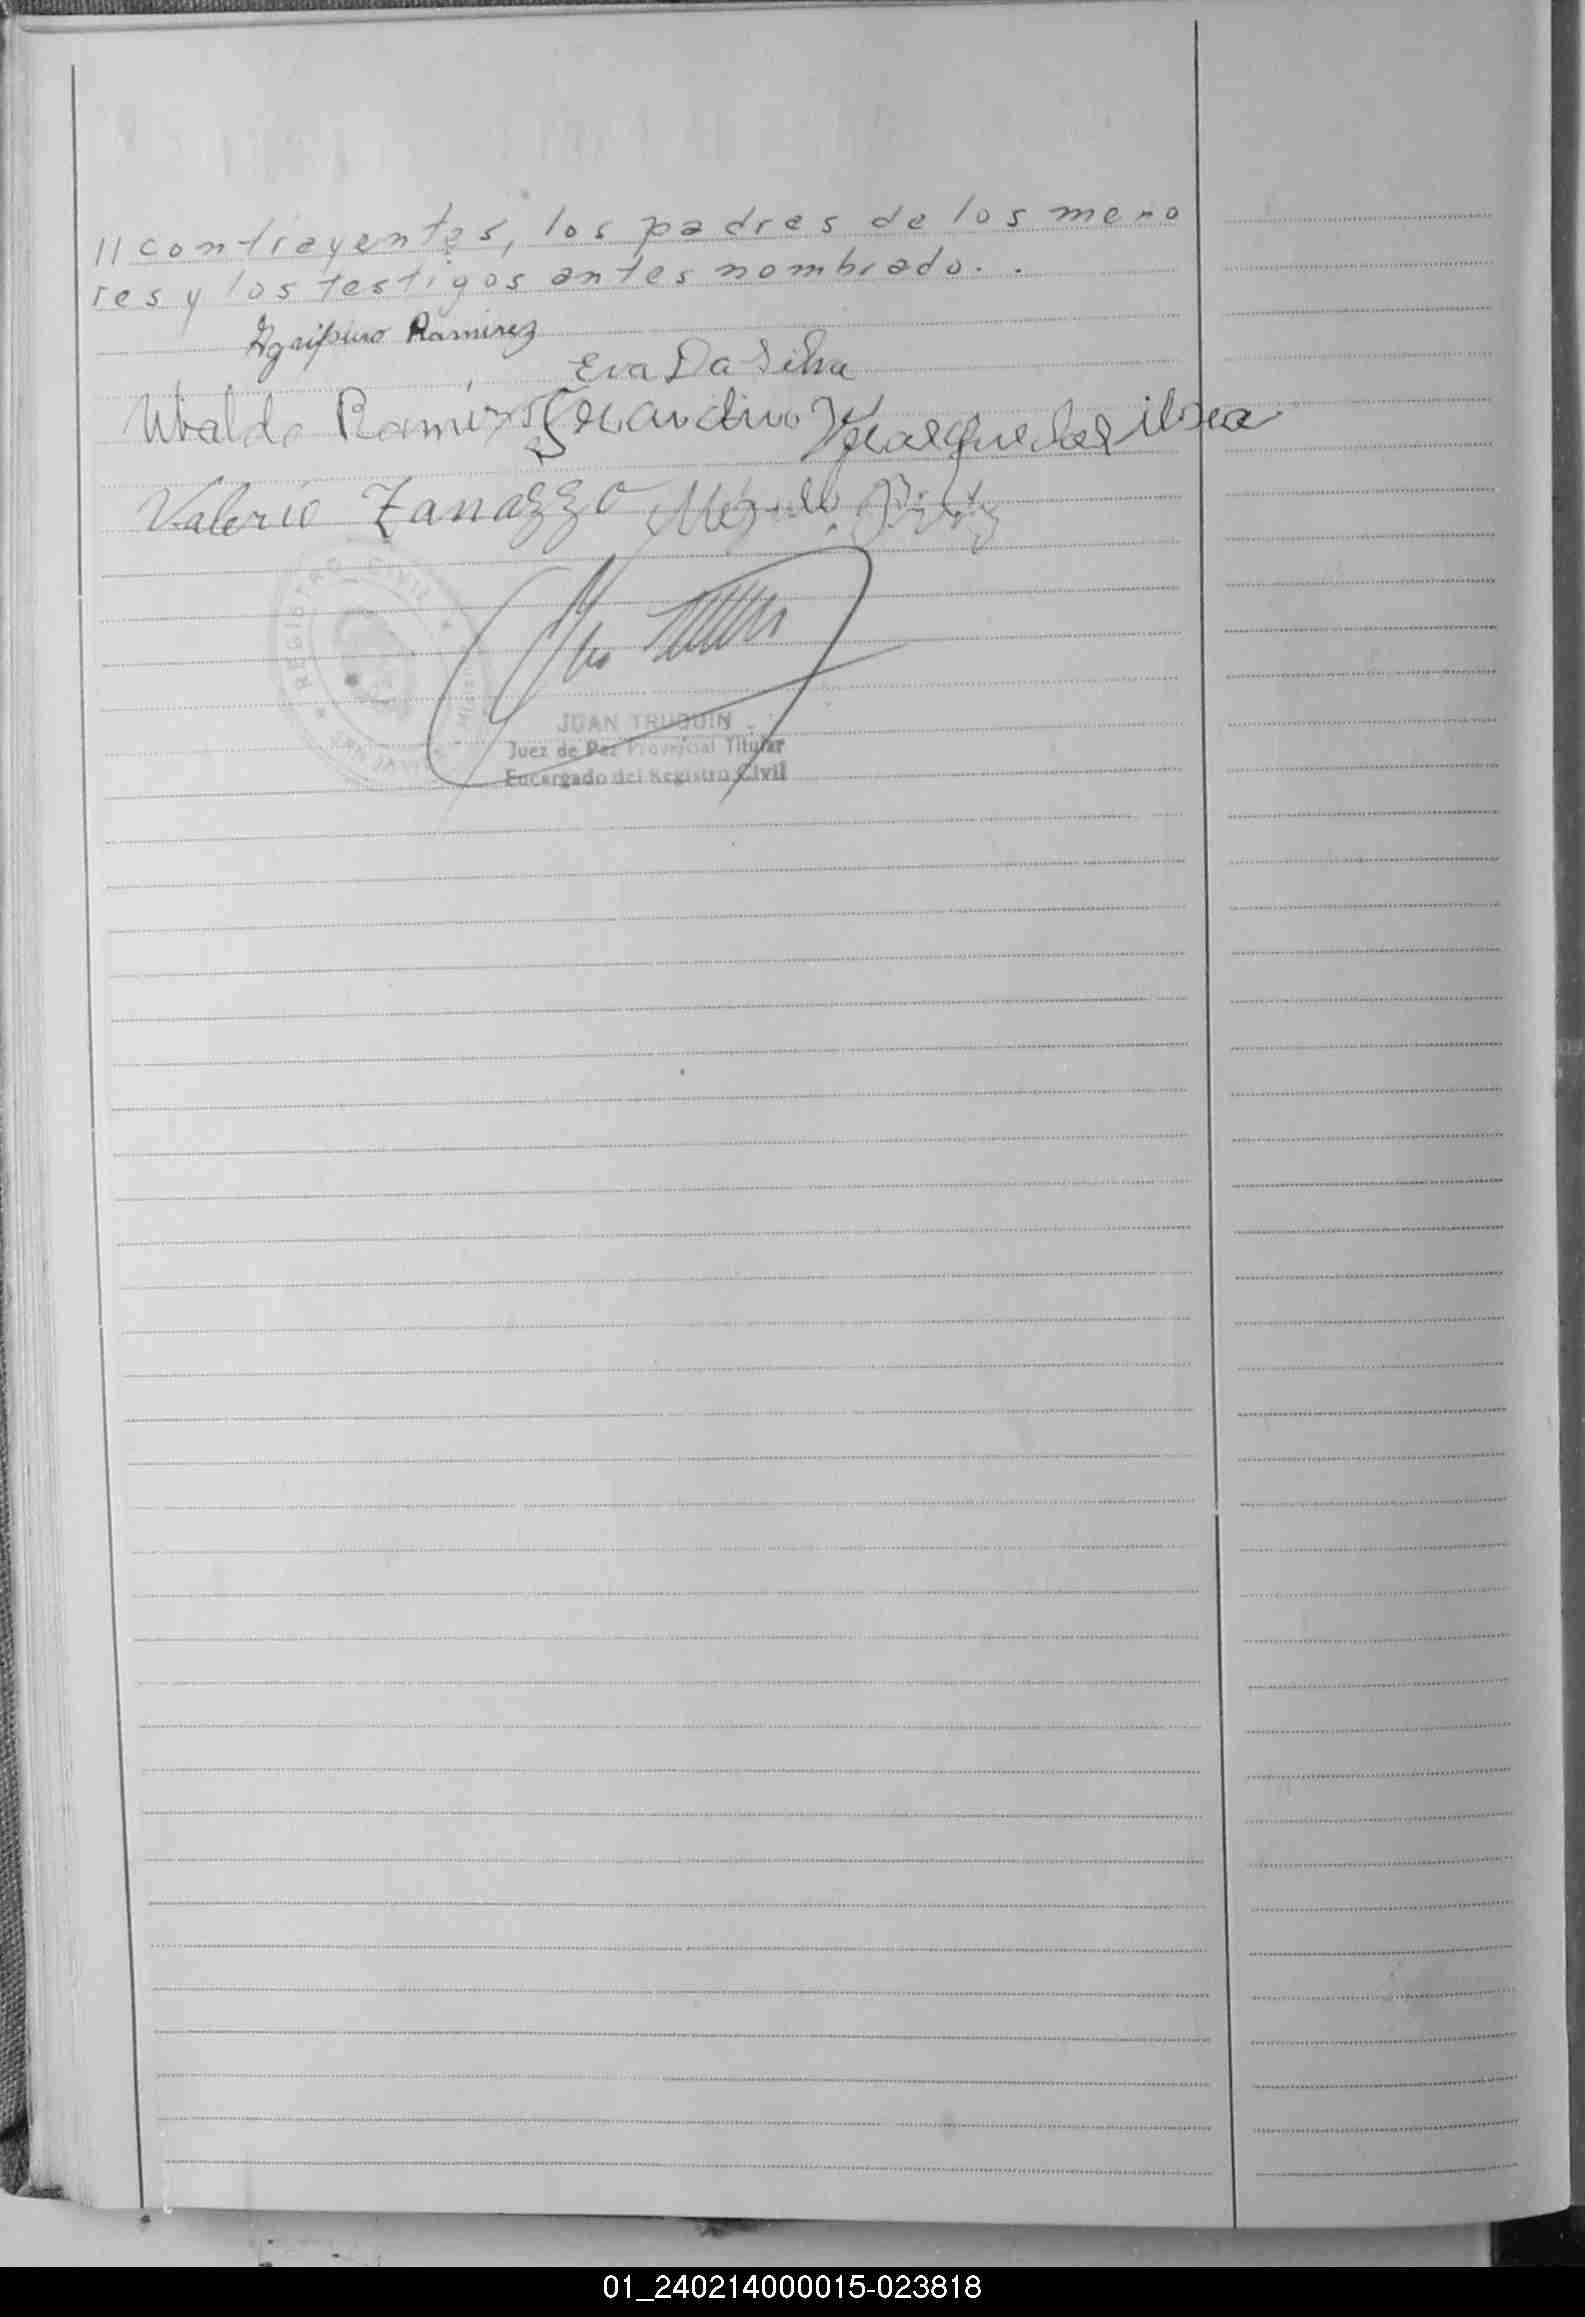 // contrayentes, los padres de los meno
res y los testigos antes nombrado. .
Agripino Ramirez
Eva Da Silva
Ubaldo Ramirez
Valerio Zanazzo
REGISTRO CIVIL
JUAN TRUQUIN
Juez de Paz Provincial Titular
Encargado del Registro Civil
01_240214000015-023818